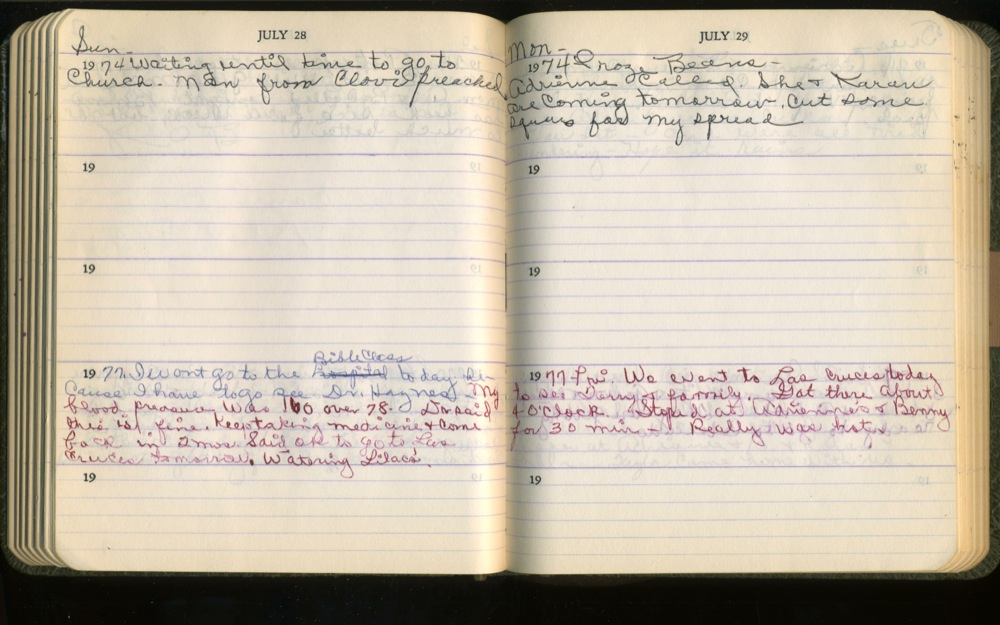 JULY 28
Sun-
1974 Waiting until time to go to
Church. Man from Clovis preached
19
19
Bible Class
1977 I wont go to the hospital today be-
cause I have to go see Dr. Haynes. My
blood preasure was 160 over 78. Dr said
this is fine. Keep taking medicine & come
back in 2 mos. Said ok to go to Las
Cruces tomorrow. Watering Lilacs.
19
JULY 29
Mon-
1974 Froze Beens-
Adrienne Called She & Karan
are Coming tomorrow. Cut some
squares for my spread
19
19
1977 Fri. We went to Las Cruces today
to see Terry & family. Got there About
4 O'Clock. Stoped at Adrienne's & Benny
for 30 min- Really was hot.
19